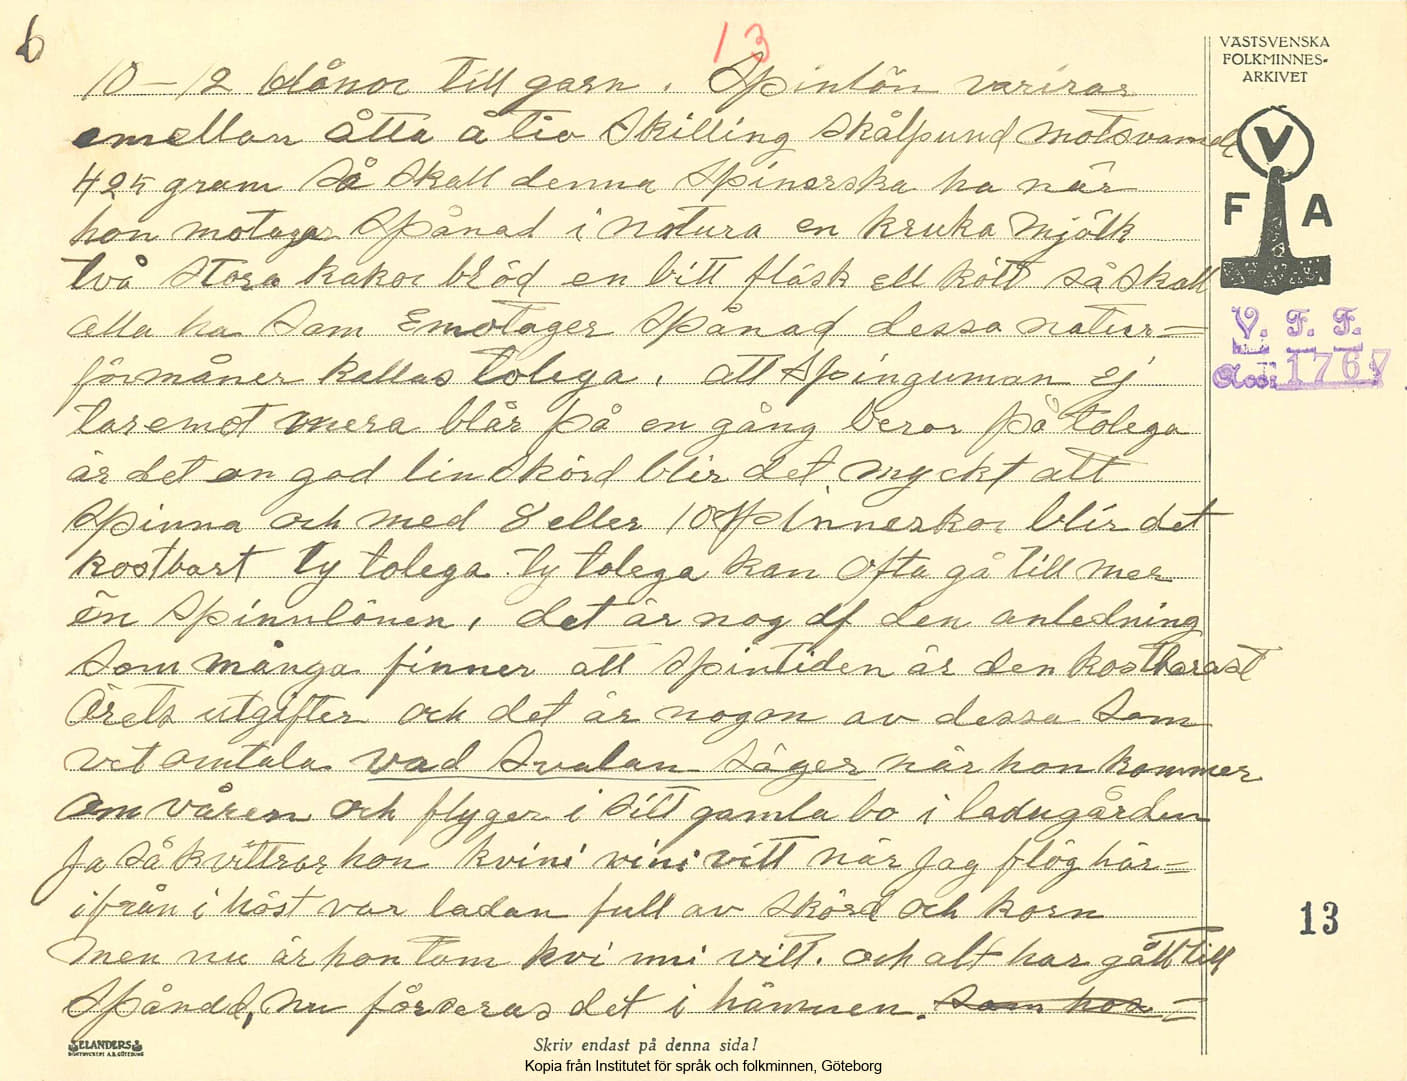 6
13
VÄSTSVENSKA
FOLKMINNES-
ARKIVET
10 — 12 dånor till garn. Spinlön varirar
emellan åtta å tio Skilling skålpund motsvarnde
425 gram så skall denna spinerska ha när
hon motager Spånad i natura en kruka mjölk
två stora kakor bröd en bitt fläsk ell kött så skall
alla ha som Emotager spånad dessa natur=
förmåner kallas tolega, att spinguman ej
taremot mera blår på en gång beror på tolega
är det en god linskörd blir det myckt att
spinna och med 8 eller 10 spinnerskor blir det
kostbart ty tolega ty tolega kan ofta gå till mer
än spinnlönen, det är nog af den anledning
som många finner att spintiden är den kostbarast
Årets utgifter och det är nogon av dessa som
vet omtala vad Svalan säger när hon kommer
om våren och flyger i sitt gamla bo i ladugården
Ja så kvittrar hon kvini vini vitt när jag flög här=
ifrån i höst var ladan full av skörd och korn
men nu är hon tom kvi vni vitt. och alt har gått till
Spånad, nu förseras det i hämnen. som hos=
V F A
V. F. F.
Acc: 1767
13
ELANDERS
BOKTRYCKERI A.B. GÖTEBORG
Skriv endast på denna sida!
Kopia från Institutet för språk och folkminnen, Göteborg